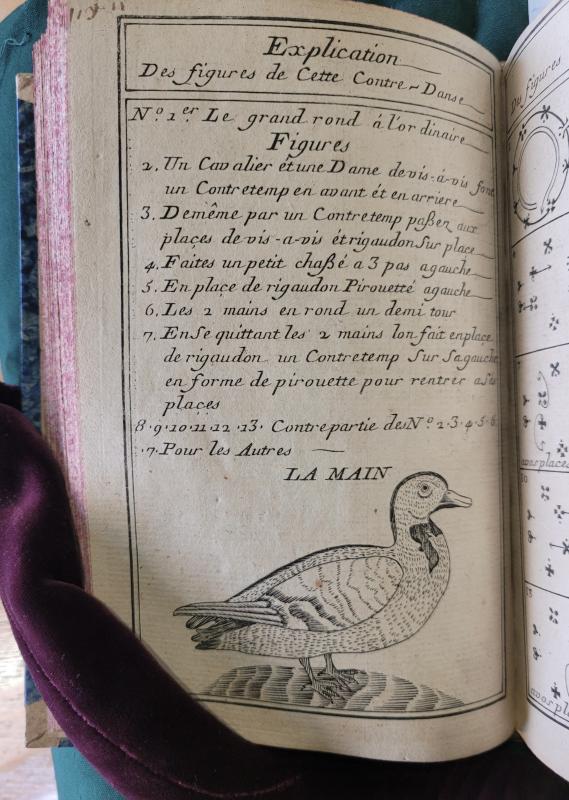 Explication
Des figures de Cette Contre-Danse
Nº. 1er Le grand rond á l'ordinaire
Figures
2. Un Cavalier êt une Dame de vis-á-vis font
un Contretemp en avant ét en arriere
3. Demême par un Contretemp paßen aux
plaçes de vis-a-vis ét rigaudon Sur place
4. Faites un petit chaßé a 3 pas agauche
5. En plaçe de rigaudon Pirouetté agauche
6. Les 2 mains en rond un demi tour
7. En Se quittant les 2 mains lon fait en plaçe
de rigaudon un Contretemp Sur Sa gauche
en forme de pirouette pour rentrer a Ses
plaçes
8.9.10.11.12.13. Contrepartie des Nº. 2.3.4.5.6.
.7. Pour les Autres
LA MAIN
Du figures
avos places
10
13